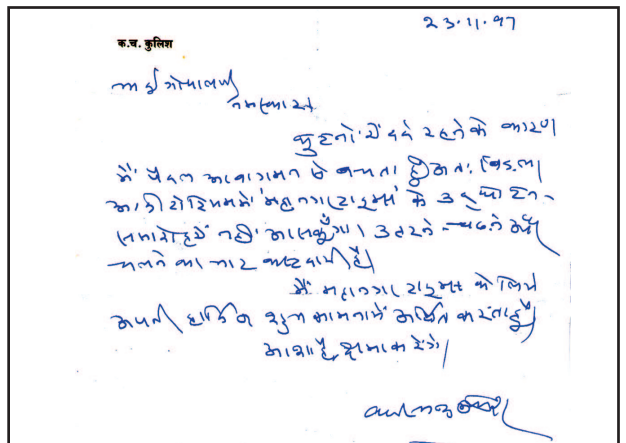 २३.११.९७
क.च. कुलिश
भाई गोपालजी
नमस्कार
घुटनों में दर्द रहने के कारण
मैं पैदल आवागमन से बचता हूँ अतः बिड़ला
आडीटोरियम में 'महानगर टाइम्स' के उद्घाटन-
समारोह में नहीं आ सकूँगा। उतरने-चढ़ने और
चलने का
हैं।
मैं महानगर टाइम्स के लिये
अपनी हार्दिक शुभ कामनायें अर्पित करता हूँ।
आशा है, क्षमा करेंगे।